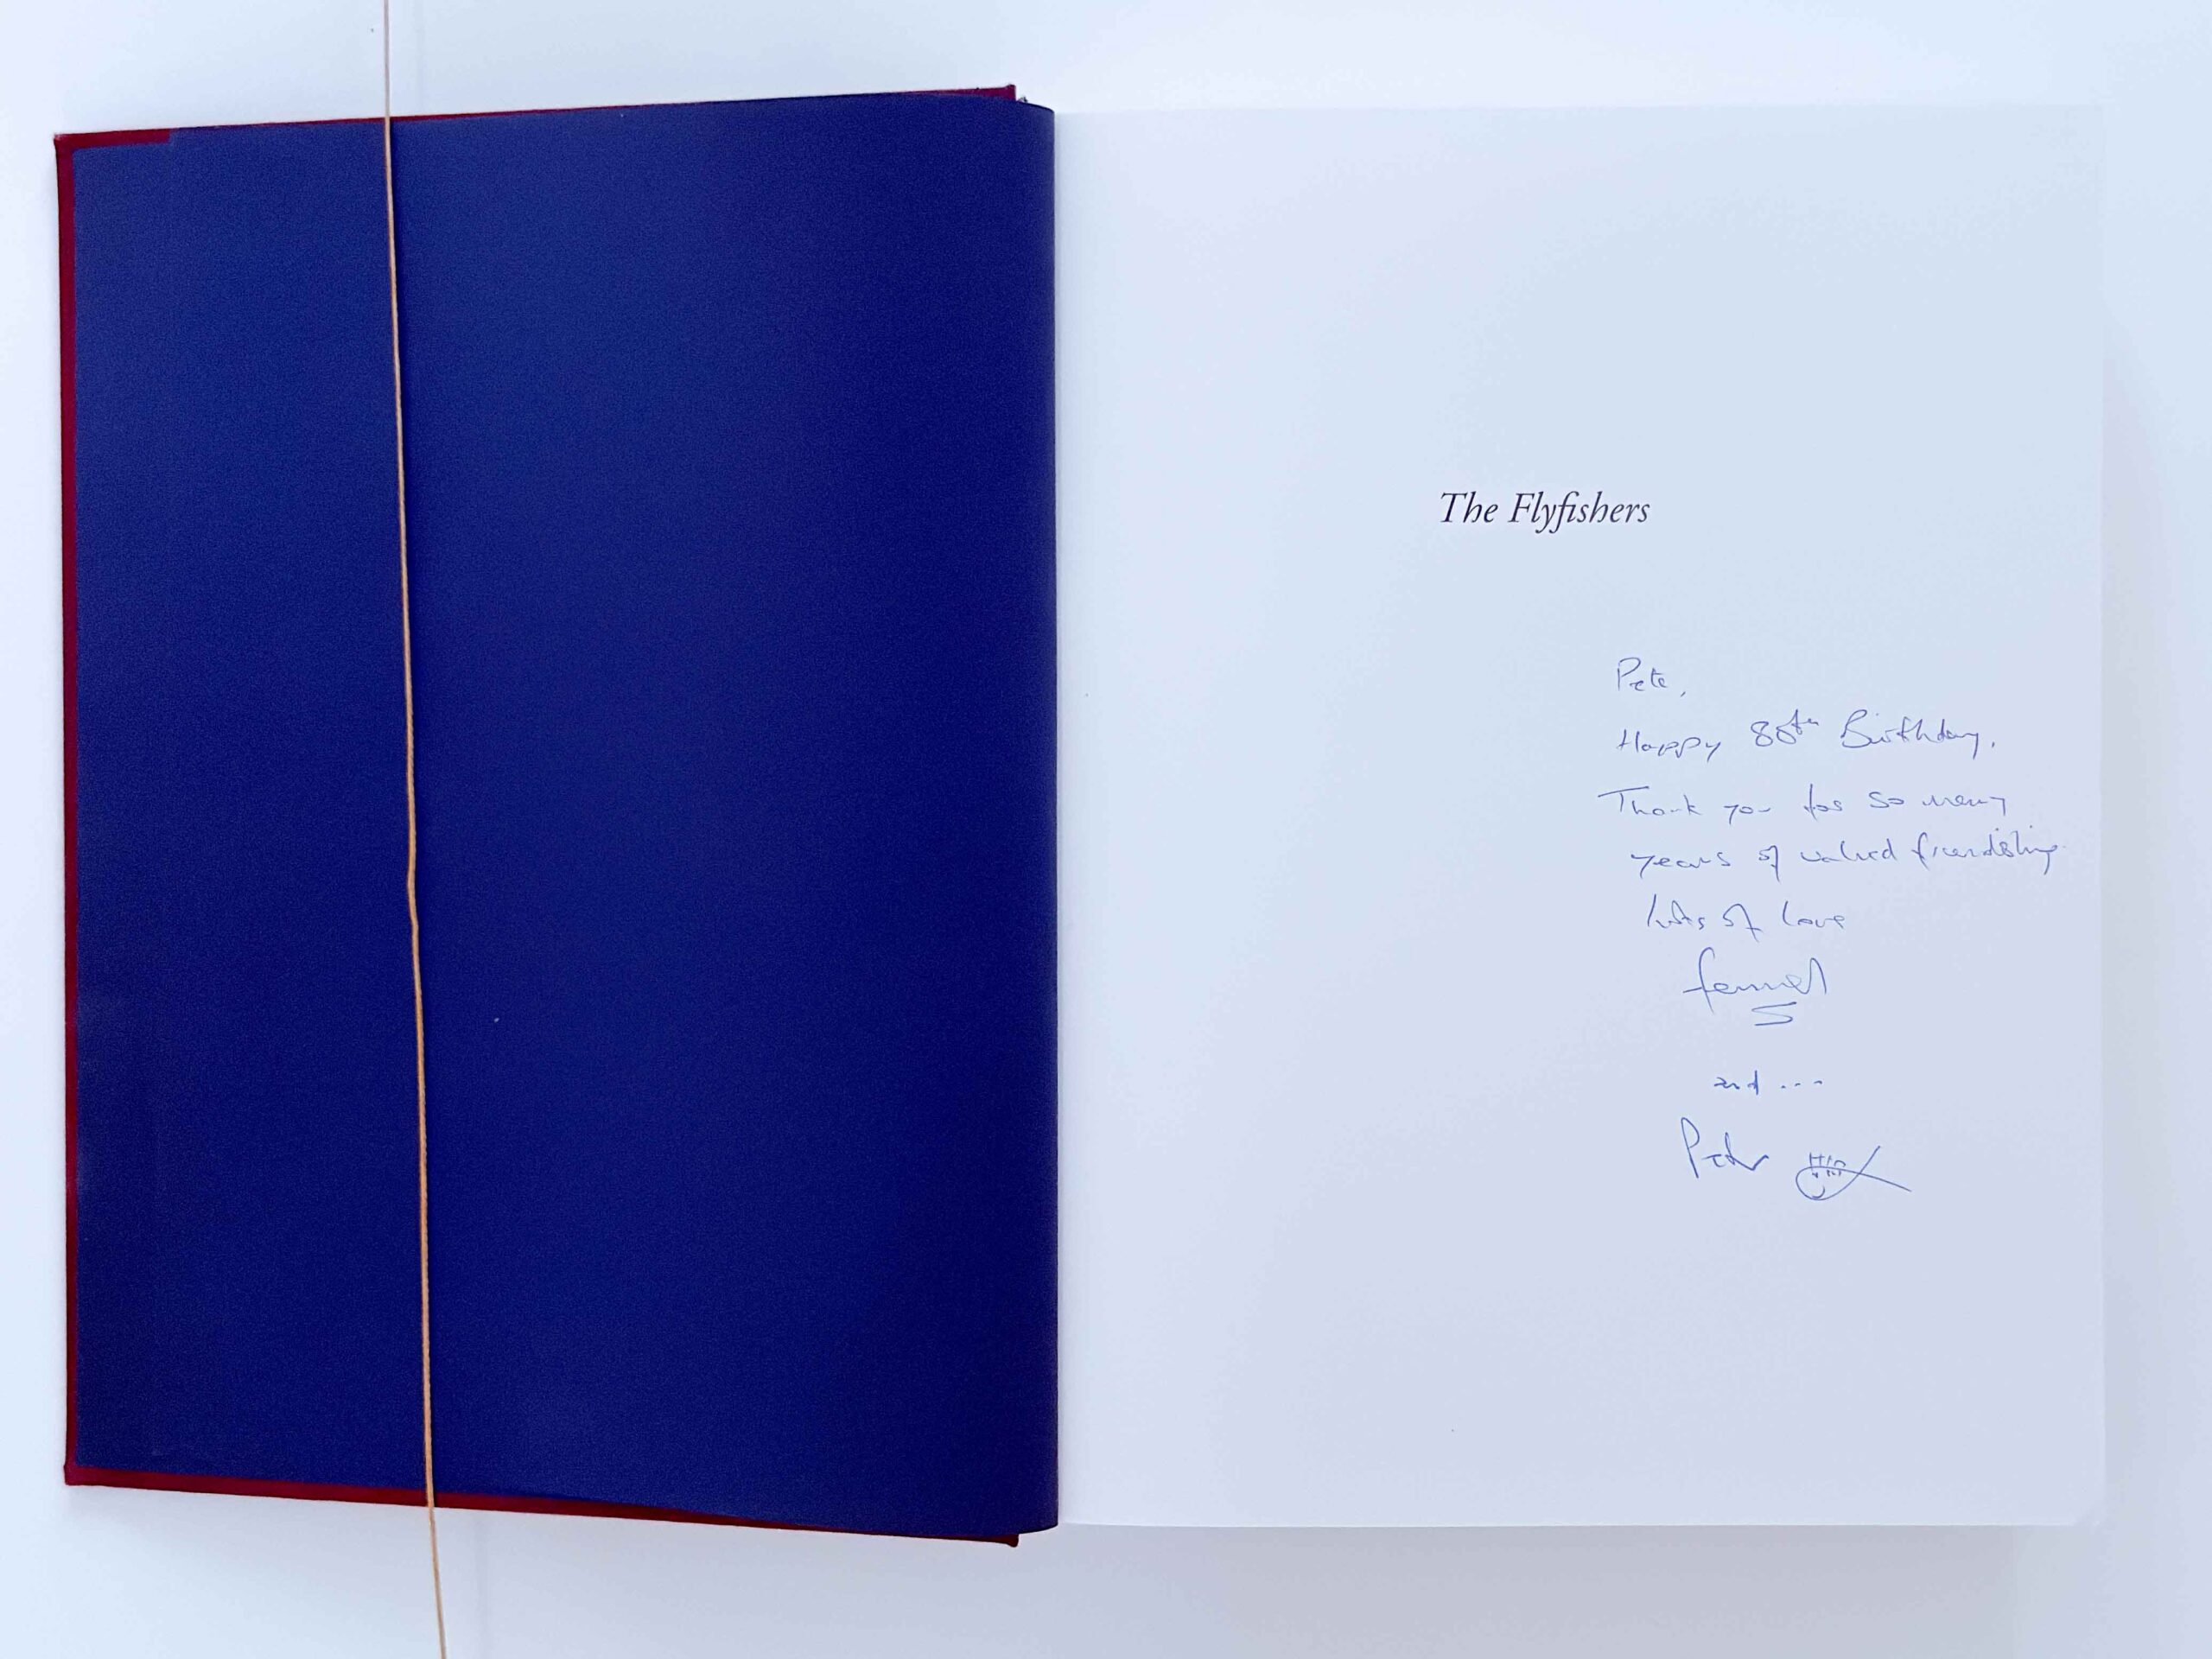 The Flyfishers
Pete,
Happy 80th Birthday,
Thank you for so many
years of valued friendship
Lots of love
fennel
and ...
Peter